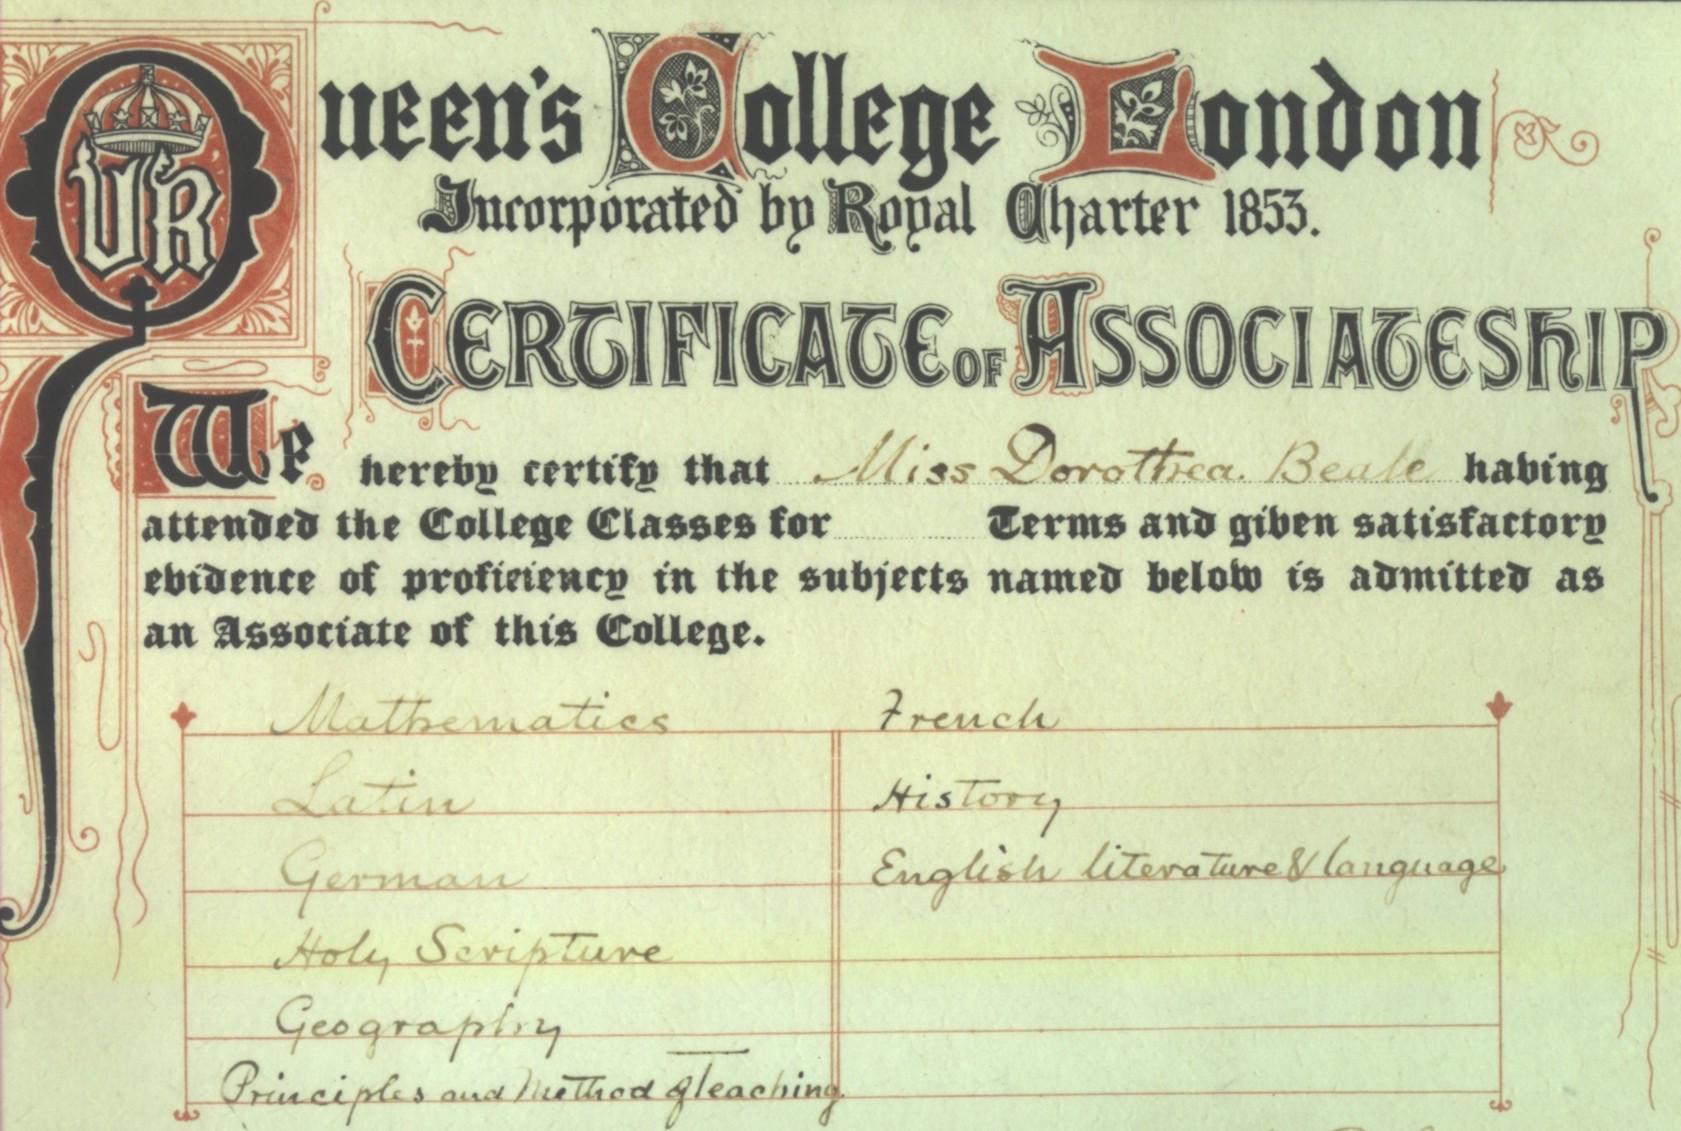 Queen's College London
Incorporated by Royal Charter 1853.
VR
CERTIFICATE OF ASSOCIATESHIP
We hereby certify that Miss Dorothea. Beale having
attended the College Classes for Terms and given satisfactory
evidence of proficiency in the subjects named below is admitted as
an Associate of this College.
Mathematics French
Latin History
German English literature & language
Holy Scripture
Geography
Principles and Method of Teaching.